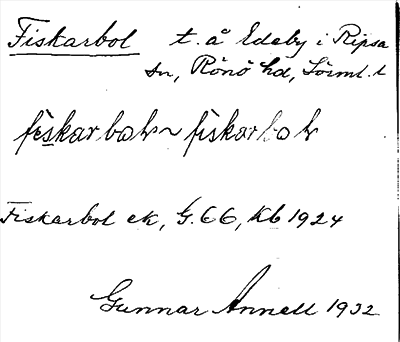 Fiskarbol t. å Edeby i Ripsa
sn, Rönö hd, Sörml. l
fiskarbol ~ fiskarbol
Fiskarbol ek, G. 66, Kb 1924
Gunnar Annell 1932